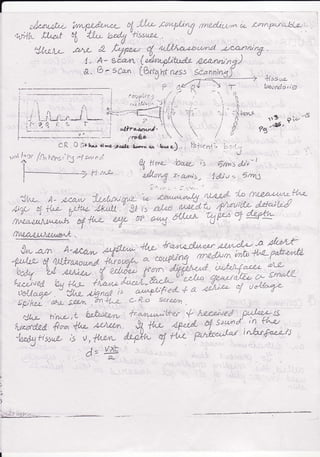 acoustic impedance of the coupling medium is comparable
with that of the body tissues.
There are 2 types of ultrasound scanning.
1. A-scan (amplitude scanning)
2. B-scan (Brightness scanning)
tissue
boundaries
P Q R T
coupling
medium
bone
P Q R
ultrasound
probe
CRO
patient's body
Pg
time
If time base is 5ms div⁻¹
along x-axis, 1div = 5ms
The A-scan technique is commonly used to measure the
size of the skull. It is also used to provide detailed
measurements of the eye or any other types of depth
measurement.
In an A-scan system the transducer sends a short
pulse of ultrasound through a coupling medium into the patients
body as series of echoes from different interfaces are
received by the transducer. Each echo generates a small
voltage. The signal is amplified + a series of voltage
spikes are seen on the CRO screen.
The time, t between transmitter & received pulses is
recorded from the screen. If the speed of sound in the
body tissue is v, then depth of the particular interface is
d = vxt
2